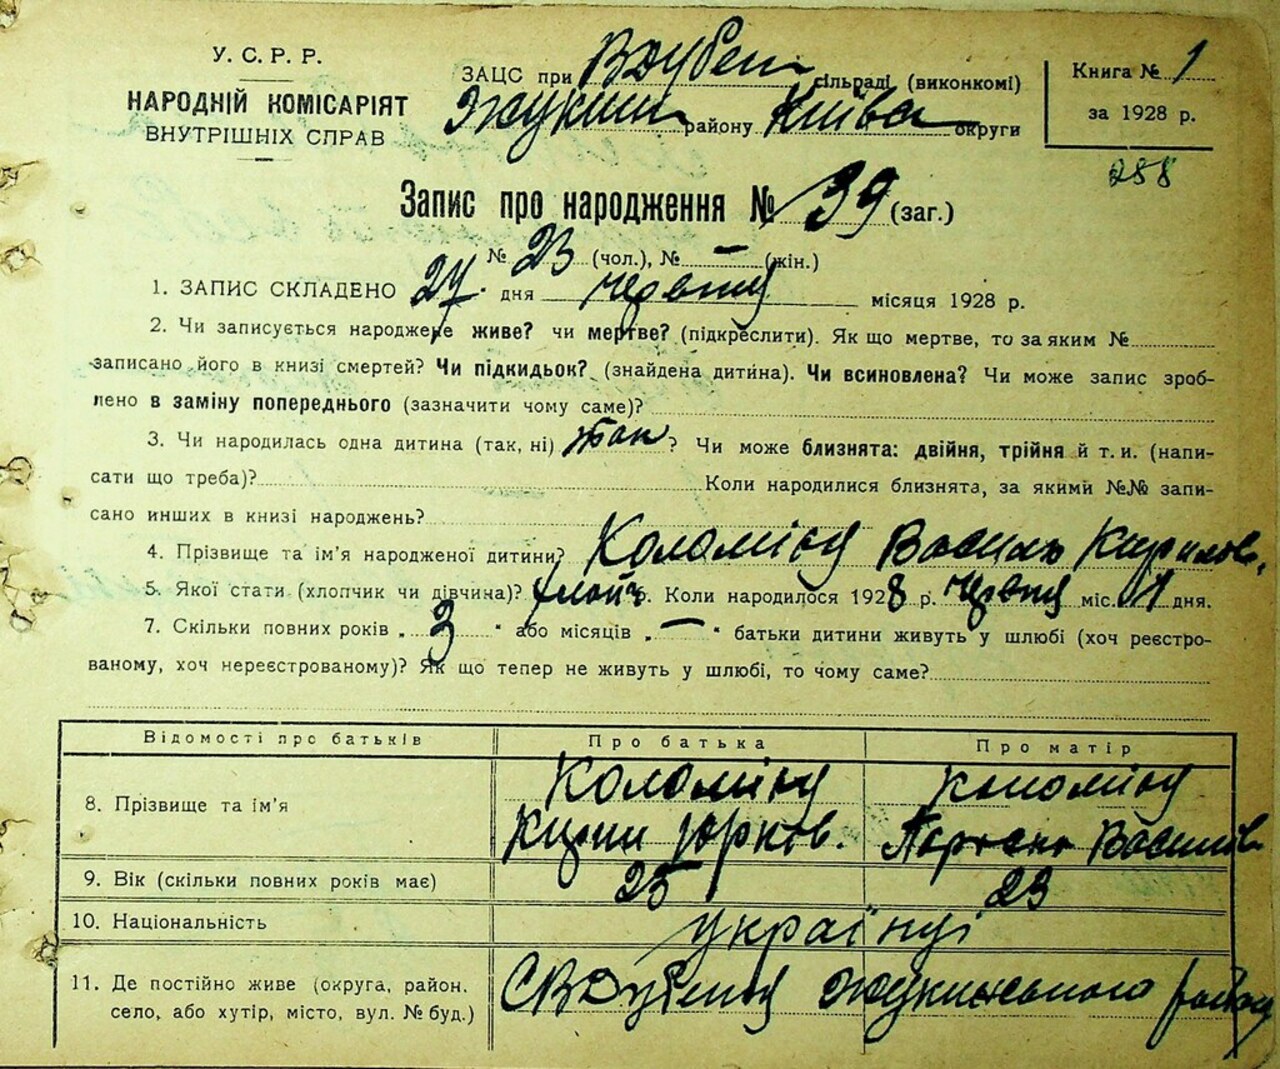 У. С. Р. Р.
НАРОДНІЙ КОМІСАРІЯТ
ВНУТРІШНІХ СПРАВ
ЗАЦС при Вдубеч сільраді (виконкомі)
Жукин району Київс округи
Книга № 1
за 1928 р.
288
Запис про народження № 39 (заг.)
№ 23 (чол.), № — (жін.)
1. ЗАПИС СКЛАДЕНО 27. дня червня місяця 1928 р.
2. Чи записується народжене живе? чи мертве? (підкреслити). Як що мертве, то за яким №
записано його в книзі смертей? Чи підкидьок? (знайдена дитина). Чи всиновлена? Чи може запис зроб-
лено в заміну попереднього (зазначити чому саме)?
3. Чи народилась одна дитина (так, ні) так? Чи може близнята: двійня, трійня й т. и. (напи-
сати що треба)? Коли народилися близнята, за якими №№ запи-
сано инших в книзі народжень?
4. Прізвище та ім’я народженої дитини? Коломієц Василь Кирилов.
5. Якої стати (хлопчик чи дівчина)? хлопч. 6. Коли народилося 1928 р. червня міс. 1 дня.
7. Скільки повних років „ 3 “ або місяців „ — “ батьки дитини живуть у шлюбі (хоч реєстро-
ваному, хоч нереєстрованому)? Як що тепер не живуть у шлюбі, то чому саме?
Відомості про батьків Про батька Про матір
8. Прізвище та ім’я Коломієц Коломієц
Юрков. Василів
9. Вік (скільки повних років має) 25 23
10. Національність українці
11. Де постійно живе (округа, район, село, або хутір, місто, вул. № буд.) Жукинського району